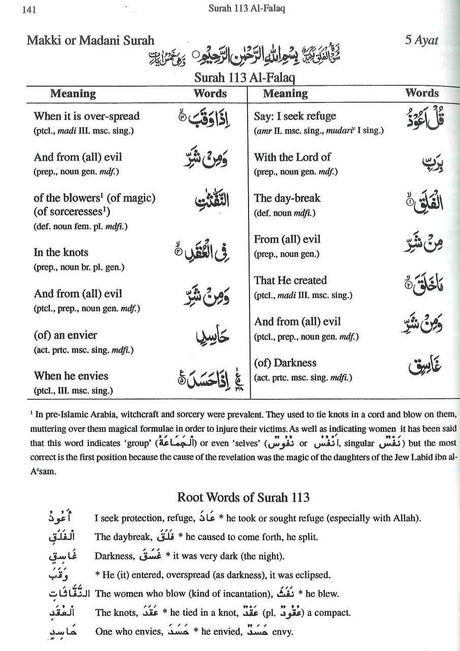 141 Surah 113 Al-Falaq
Makki or Madani Surah 5 Ayat
بِسْمِ اللهِ الرَّحْمٰنِ الرَّحِيْمِ
Surah 113 Al-Falaq
Meaning Words Meaning Words
Say: I seek refuge قُلْ اَعُوْذُ
(amr II. msc. sing., mudariᶜ I sing.)
With the Lord of بِرَبِّ
(prep., noun gen. mdf.)
The day-break الْفَلَقِ ۝١
(def. noun gen.)
From (all) evil مِنْ شَرِّ
(prep., noun gen.)
That He created مَا خَلَقَ ۝٢
(ptcl., madi III. msc. sing.)
And from (all) evil وَمِنْ شَرِّ
(ptcl., prep., noun gen. mdf.)
(of) Darkness غَاسِقٍ
(act. prtc. msc. sing. mdfi.)
When it is over-spread اِذَا وَقَبَ ۝٣
(ptcl., madi III. msc. sing.)
And from (all) evil وَمِنْ شَرِّ
(prep., noun gen. mdf.)
of the blowers¹ (of magic) النَّفّٰثٰتِ
(of sorceresses¹)
(def. noun fem. pl. mdfi.)
In the knots فِى الْعُقَدِ ۝٤
(prep., noun br. pl. gen.)
And from (all) evil وَمِنْ شَرِّ
(ptcl., prep., noun gen. mdf.)
(of) an envier حَاسِدٍ
(act. prtc. msc. sing. mdfi.)
When he envies اِذَا حَسَدَ ۝٥
(ptcl., III. msc. sing.)
¹ In pre-Islamic Arabia, witchcraft and sorcery were prevalent. They used to tie knots in a cord and blow on them,
muttering over them magical formulae in order to injure their victims. As well as indicating women it has been said
that this word indicates 'group' (الْجَمَاعَة) or even 'selves' (نُفُوْسٌ or أَنْفُسٌ, singular نَفْسٌ) but the most
correct is the first position because the cause of the revelation was the magic of the daughters of the Jew Labid ibn al-
Aᶜsam.
Root Words of Surah 113
أَعُوذُ I seek protection, refuge, عَاذَ * he took or sought refuge (especially with Allah).
الْفَلَقِ The daybreak, فَلَقَ * he caused to come forth, he split.
غَاسِقٍ Darkness, غَسَقَ * it was very dark (the night).
وَقَبَ * He (it) entered, overspread (as darkness), it was eclipsed.
النَّفَّاثَاتِ The women who blow (kind of incantation), نَفَثَ * he blew.
الْعُقَدِ The knots, عَقَدَ * he tied in a knot, عَقْدٌ (pl. عُقُودٌ) a compact.
حَاسِدٍ One who envies, حَسَدَ * he envied, حَسَدٌ envy.